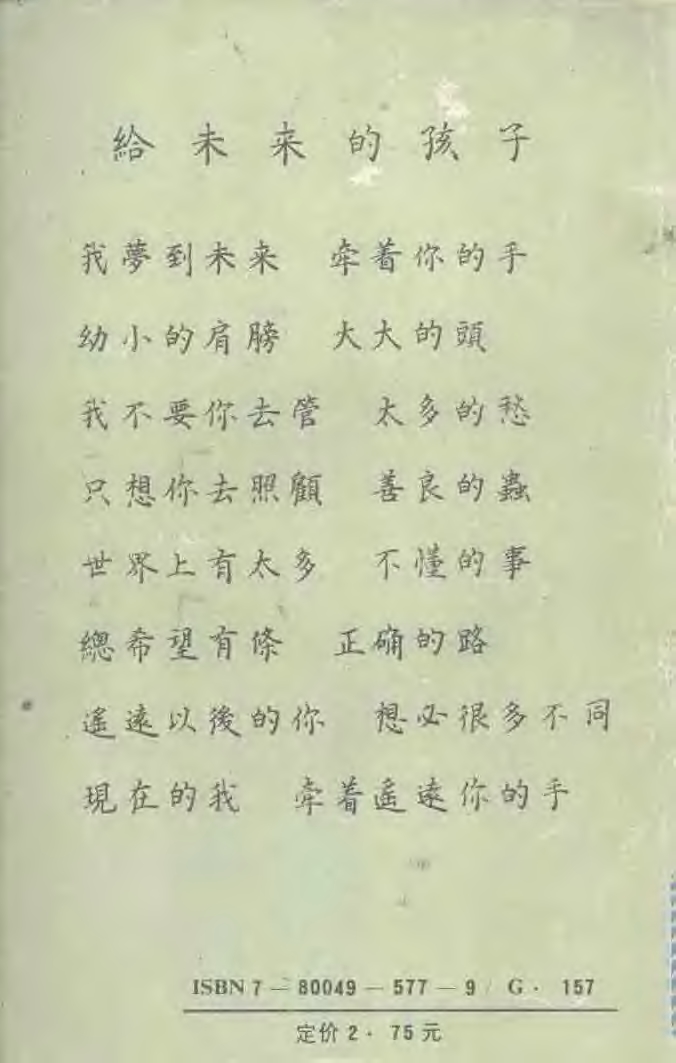 給未来的孩子
我夢到未来　牵着你的手
幼小的肩膀　大大的頭
我不要你去管　太多的愁
只想你去照顧　善良的蟲
世界上有太多　不懂的事
總希望有條　正确的路
遙遠以後的你　想必很多不同
現在的我　牵着遙遠你的手
ISBN 7－80049－577－9／G· 157
定价 2·75元